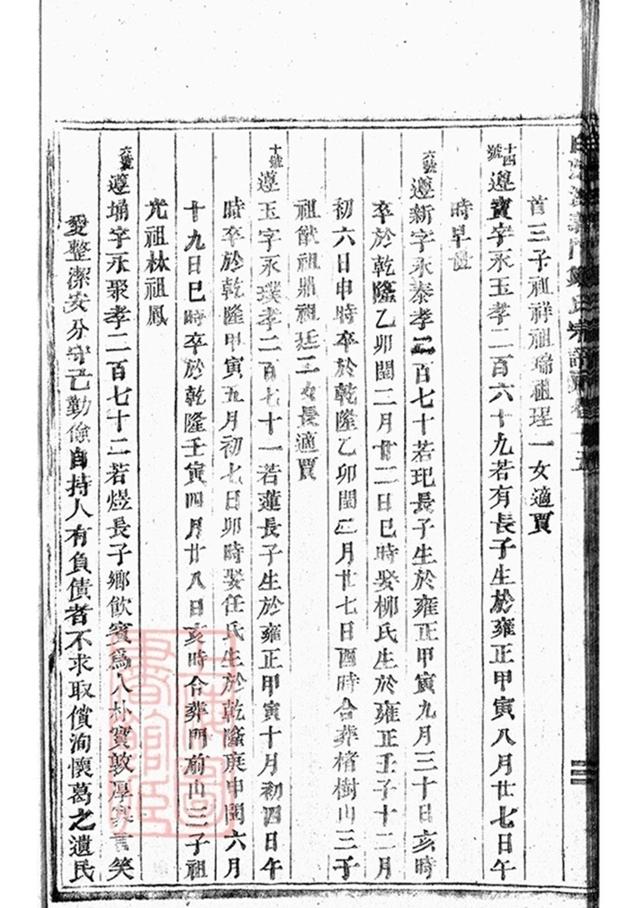 首三子祖祥祖瑞祖珵一女適賈
十四號遵寶字永玉孝二百六十九若有長子生於雍正甲寅八月廿七日午
時早世
六號遵新字永泰孝二百七十若玘長子生於雍正甲寅九月三十日亥時
卒於乾隆乙卯閏二月廿二日巳時娶柳氏生於雍正壬子十二月
初六日申時卒於乾隆乙卯閏二月廿七日酉時合葬楮樹山三子
祖猷祖鼎祖廷二女長適賈
十號遵玉字永璞孝二百七十一若蓮長子生於雍正甲寅十月初四日午
時卒於乾隆甲寅五月初七日卯時娶任氏生於乾隆庚申閏六月
十九日巳時卒於乾隆壬寅四月廿八日亥時合葬門前山三子祖
光祖林祖鳳
六號遵埇字永聚孝二百七十二若煜長子鄉飲賓為人朴實敦厚寡言笑
愛整潔安分守己勤儉自持人有負債者不求取償洵懷葛之遺民